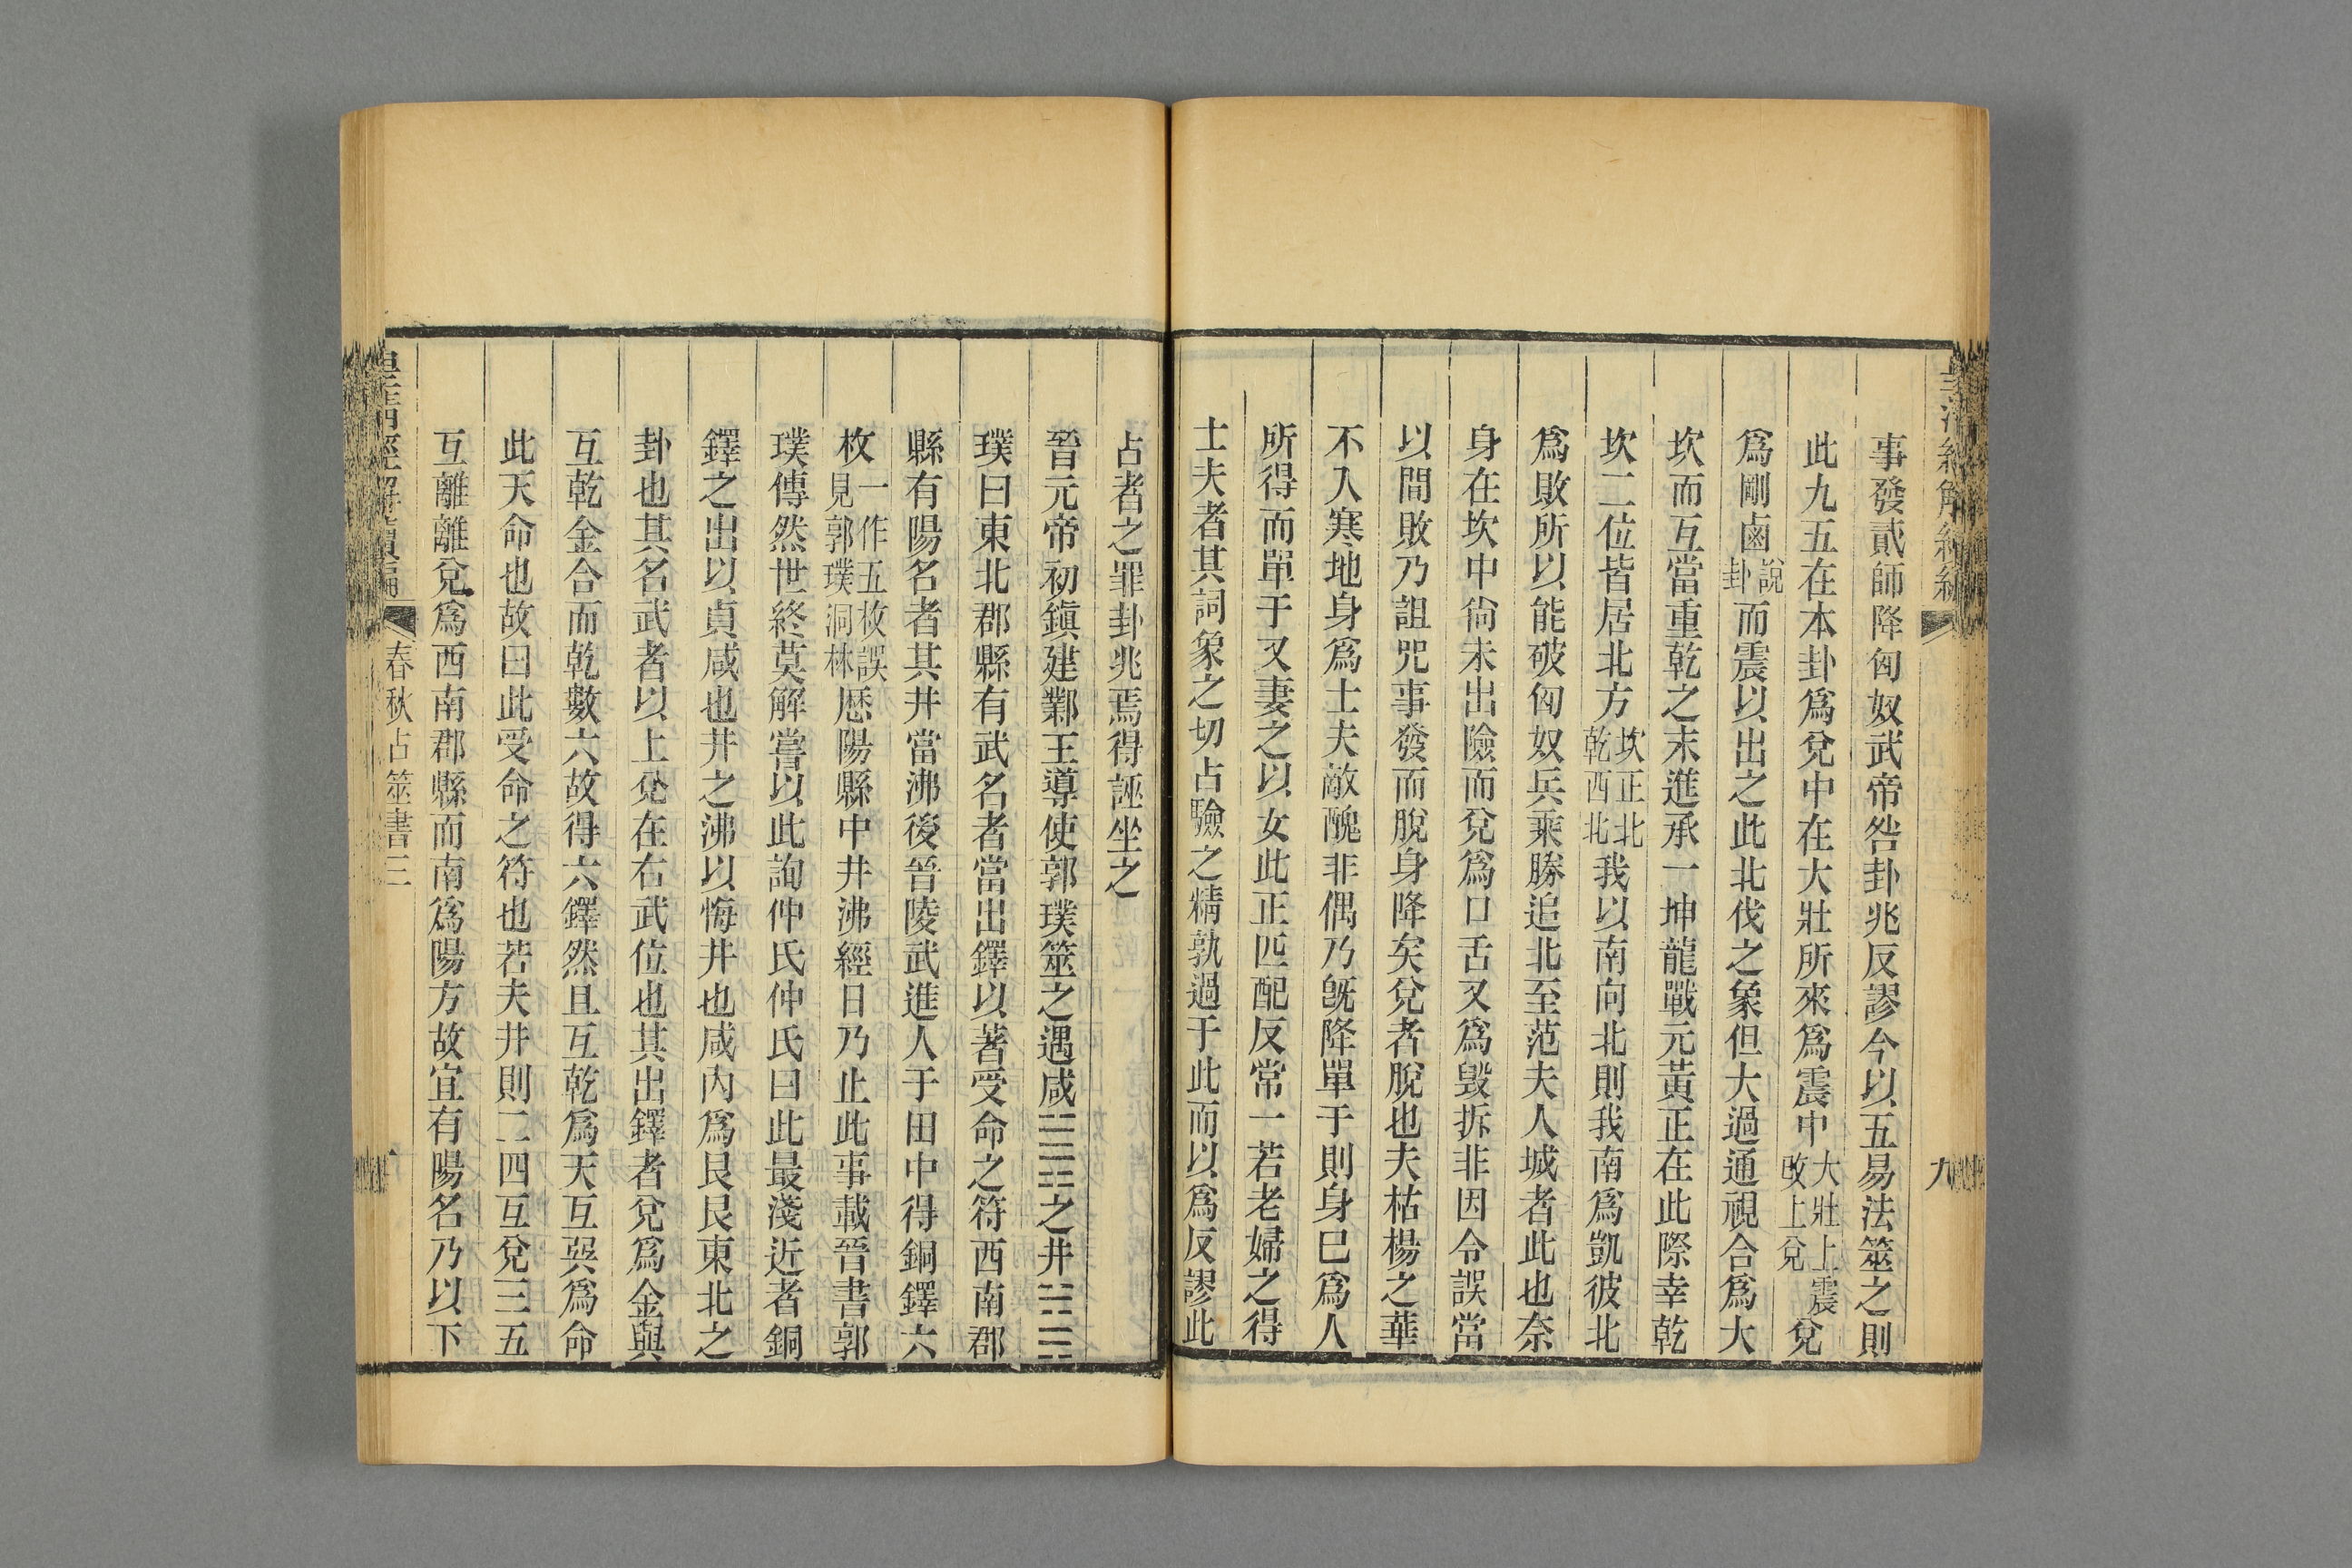 皇清經解續編
九
事發貳師降匈奴武帝咎卦兆反謬今以五易法筮之則
此九五在本卦爲兌中在大壯所來爲震中大壯上震攺上兌兌
爲剛鹵說卦而震以出之此北伐之象但大過通視合爲大
坎而互當重乾之末進承一坤龍戰元黃正在此際幸乾
坎二位皆居北方坎正北乾西北我以南向北則我南爲凱彼北
爲敗所以能破匈奴兵乘勝追北至范夫人城者此也奈
身在坎中尙未出險而兌爲口舌又爲毀拆非因令誤當
以間敗乃詛咒事發而脫身降矣兌者脫也夫枯楊之華
不入寒地身爲士夫敵醜非偶乃旣降單于則身已爲人
所得而單于又妻之以女此正匹配反常一若老婦之得
士夫者其詞象之切占驗之精孰過于此而以爲反謬此
占者之罪卦兆焉得誣坐之
晉元帝初鎭建鄴王導使郭璞筮之遇咸䷞之井䷯
璞曰東北郡縣有武名者當出鐸以著受命之符西南郡
縣有陽名者其井當沸後晉陵武進人于田中得銅鐸六
枚一作五枚誤見郭璞洞林歷陽縣中井沸經日乃止此事載晉書郭
璞傳然世終莫解嘗以此詢仲氏仲氏曰此最淺近者銅
鐸之出以貞咸也井之沸以悔井也咸內爲艮艮東北之
卦也其名武者以上兌在右武位也其出鐸者兌爲金與
互乾金合而乾數六故得六鐸然且互乾爲天互巽爲命
此天命也故曰此受命之符也若夫井則二四互兌三五
互離離兌爲西南郡縣而南爲陽方故宜有陽名乃以下
皇清經解續編
春秋占筮書三